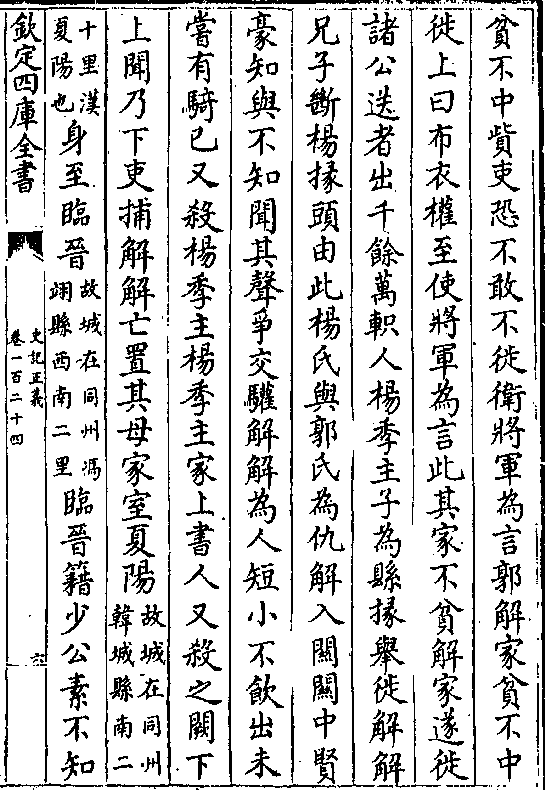 貧不中貲吏恐不敢不徙衛將軍為言郭解家貧不中
徙上曰布衣權至使將軍為言此其家不貧解家遂徙
諸公送者出千餘萬軹人楊季主子為縣掾舉徙解解
兄子斷楊掾頭由此楊氏與郭氏為仇解入關關中賢
豪知與不知聞其聲爭交驩解解為人短小不飲出未
嘗有騎已又殺楊季主楊季主家上書人又殺之闕下
上聞乃下吏捕解解亡置其母家室夏陽故城在同州韓城縣南二
十里漢夏陽也身至臨晉故城在同州馮翊縣西南二里臨晉籍少公素不知
欽定四庫全書
史記正義
卷一百二十四
六